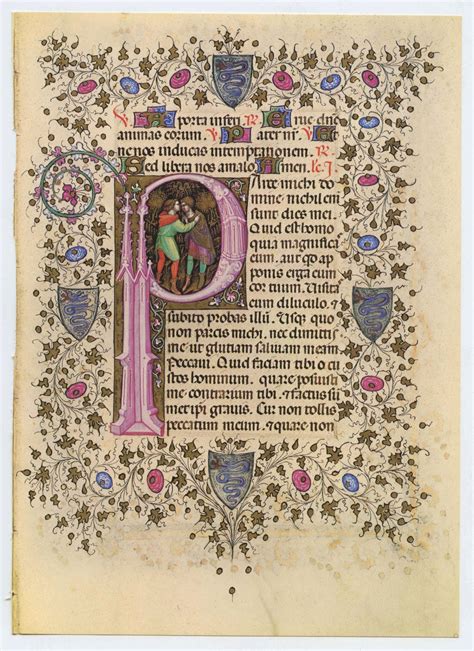 V A porta inferi R Erue dne
animas corum V Pater nr V Et
ne nos inducas in temptationem. R
Sed libera nos amalo Amen. lc. I.
Parce michi do
mine nichil eni
sunt dies mei.
Quid est homo
quia magnificas
eum. aut qd ap
ponis erga eum
cor tuum. Visitas
eum diluculo. &
subito probas illū. Usqꝫ quo
non parcis michi, nec dimittis
me ut glutiam saluam meam
Peccaui. Quid faciam tibi o cu
stos hominum. quare posuisti
me contrarium tibi. & factus sū
met ipi grauis. Cur non tollis
peccatum meum. & quare non